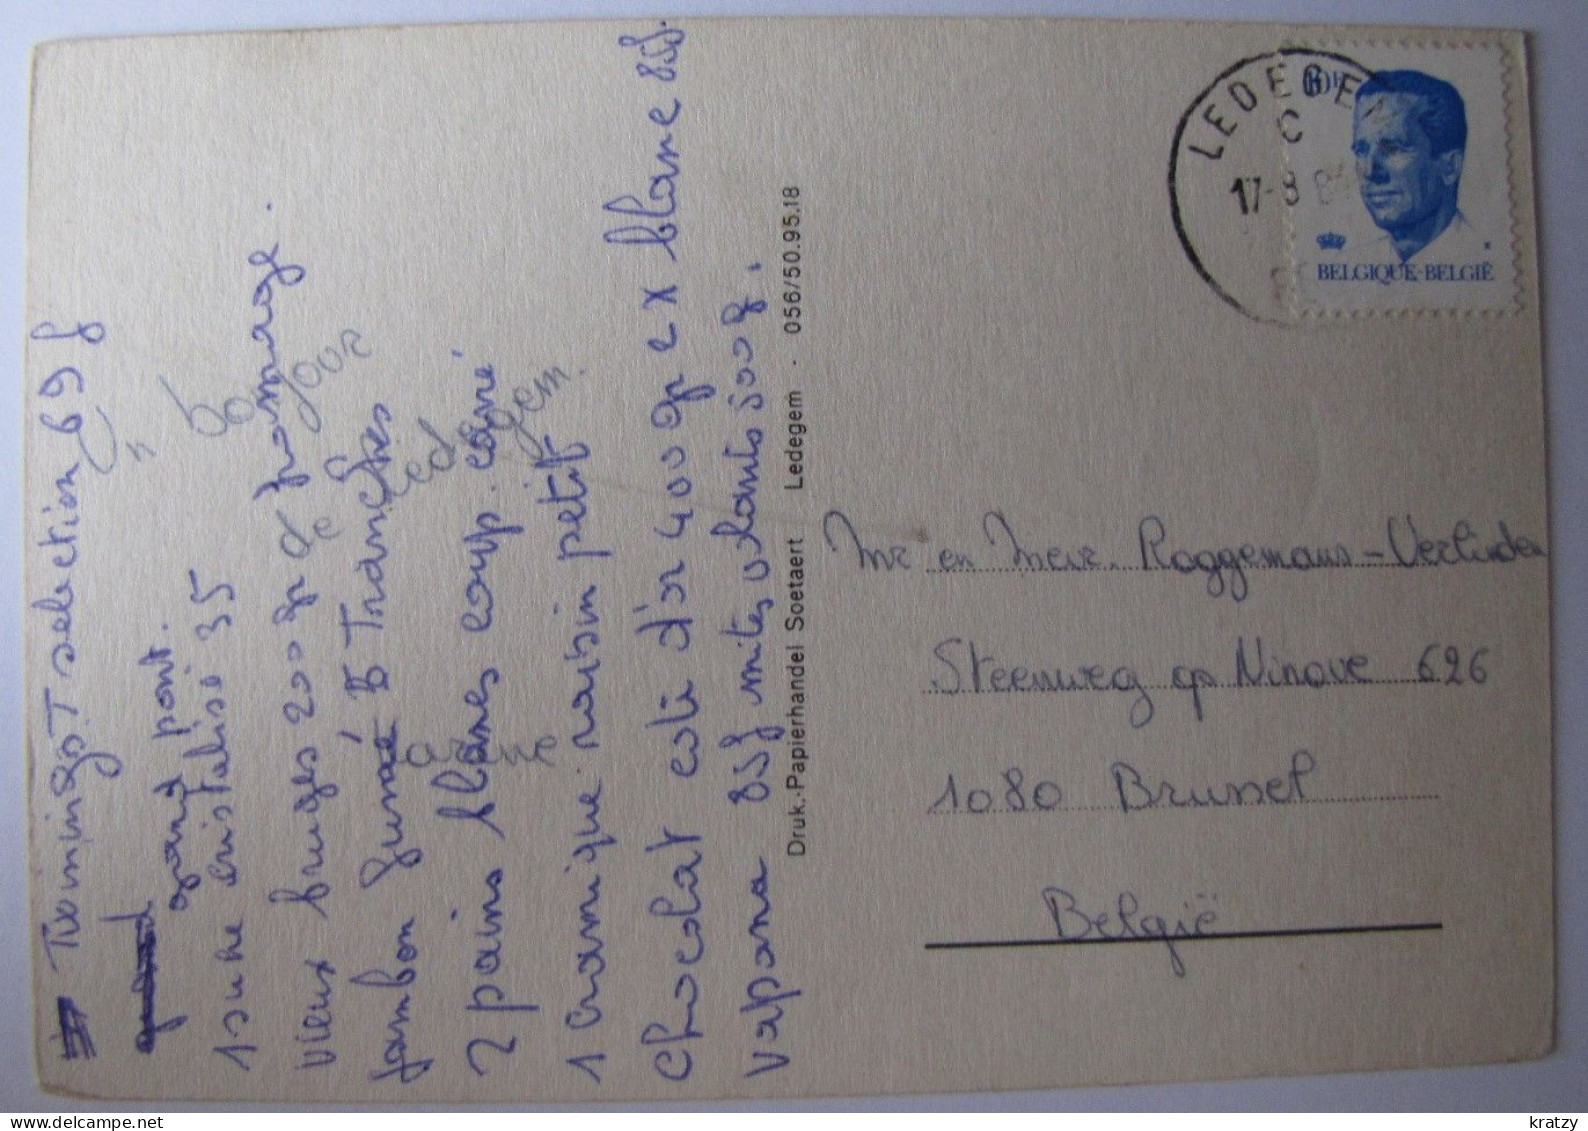 Twinings T selection 69 f
grand pont.
1 sucre cristalisé 35
vieux bruges 200 gr de fromage.
jambon fumé 5 Tranches
2 pains blancs coup. carré
1 cramique raisin petit
chocolat coté d'or 400 gr ex blanc 85f.
vapona 85f mites volants 500g.
Un
bonjour
de
Ledegem.
Carine
Druk.-Papierhandel Soetaert Ledegem · 056/50.95.18
LEDEGEM
C
17-8
10F
BELGIQUE-BELGIË
Mr en Mevr. Roggemans-Verlinden
Steenweg op Ninove 626
1080 Brussel
België
delcampe.net
kratzy